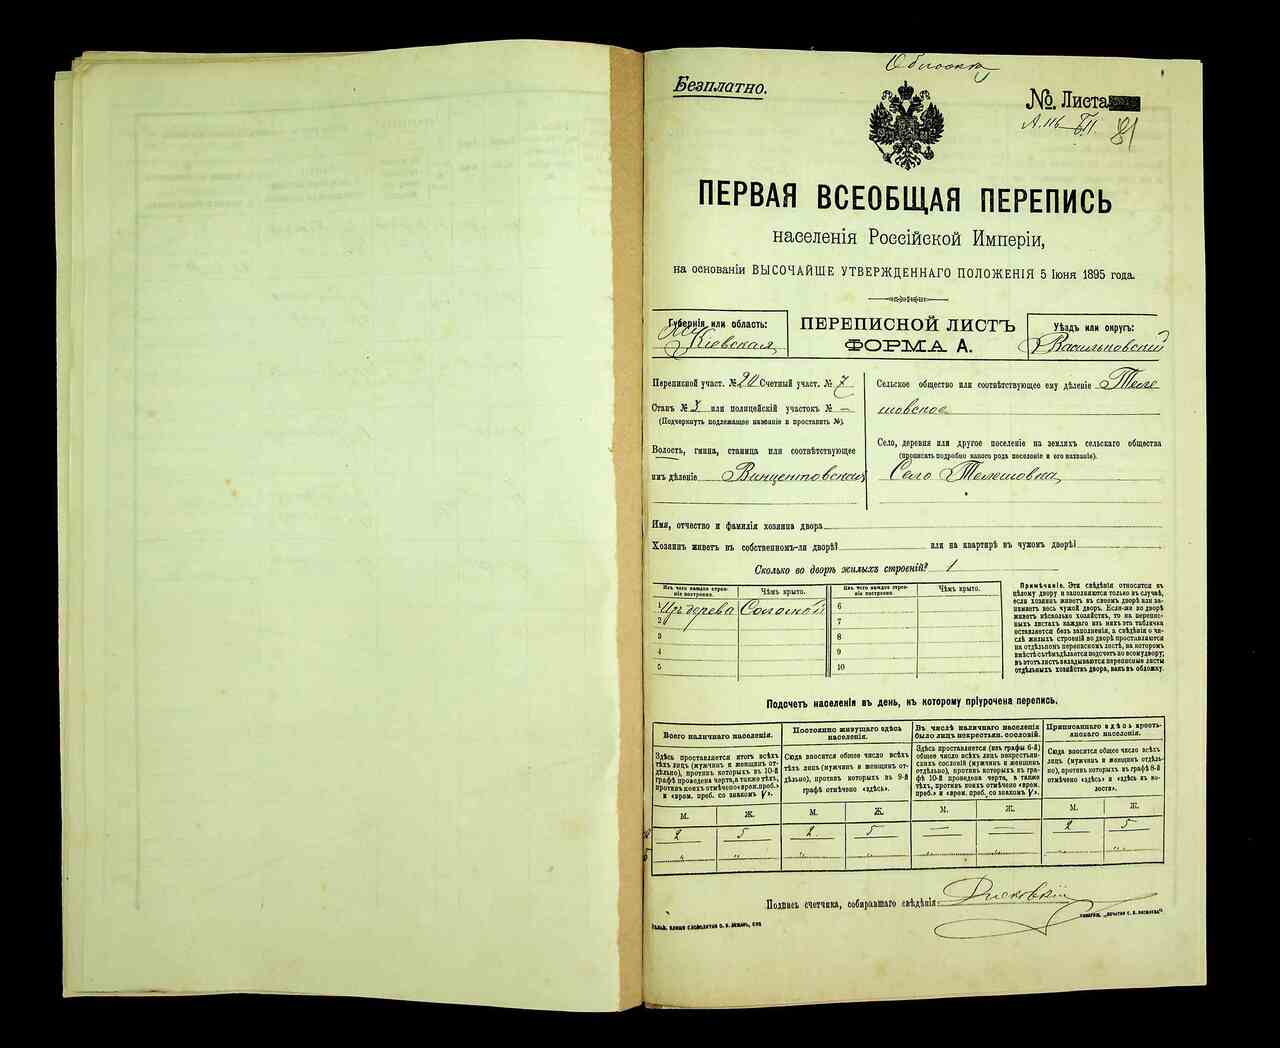 Обложка
Безплатно.
№. Листа
81
ПЕРВАЯ ВСЕОБЩАЯ ПЕРЕПИСЬ
населенія Россійской Имперіи,
на основаніи ВЫСОЧАЙШЕ УТВЕРЖДЕННАГО ПОЛОЖЕНІЯ 5 Іюня 1895 года.
Губернія или область:
Кіевская
ПЕРЕПИСНОЙ ЛИСТЪ
ФОРМА А.
Уѣздъ или округъ:
Васильковскій
Переписной участ. №20 Счетный участ. № 7
Станъ № 3 или полицейскій участокъ № —
(Подчеркнуть подлежащее названіе и проставить №).
Волость, гмина, станица или соотвѣтствующее
имъ дѣленіе Винцентовская
Сельское общество или соотвѣтствующее ему дѣленіе Теле
шовское
Село, деревня или другое поселеніе на земляхъ сельскаго общества
(прописать подробно какого рода поселеніе и его названіе).
Село Телешовка
Имя, отчество и фамилія хозяина двора
Хозяинъ живетъ въ собственномъ-ли дворѣ? или на квартирѣ въ чужомъ дворѣ?
Сколько во дворѣ жилыхъ строеній? 1
Изъ чего каждое строе-
ніе построено.
Чѣмъ крыто.
Изъ чего каждое строе-
ніе построено.
Чѣмъ крыто.
1 Изъ дерева Соломой 6
2 7
3 8
4 9
5 10
Примѣчаніе. Эти свѣдѣнія относятся къ
цѣлому двору и заполняются только въ случаѣ,
если хозяинъ живетъ въ своемъ дворѣ или за-
нимаетъ весь чужой дворъ. Если-же во дворѣ
живетъ нѣсколько хозяйствъ, то на перепис-
ныхъ листахъ каждаго изъ нихъ эта табличка
оставляется безъ заполненія, а свѣдѣнія о чи-
слѣ жилыхъ строеній во дворѣ проставляются
на отдѣльномъ переписномъ листѣ, на которомъ
вмѣстѣ съ тѣмъ дѣлается подсчетъ по всему двору;
въ этотъ листъ вкладываются переписные листы
отдѣльныхъ хозяйствъ двора, какъ въ обложку.
Подсчетъ населенія въ день, къ которому пріурочена перепись.
Всего наличнаго населенія.
Здѣсь проставляется итогъ всѣхъ
тѣхъ лицъ (мужчинъ и женщинъ от-
дѣльно), противъ которыхъ въ 10-й
графѣ проведена черта, а также тѣхъ,
противъ коихъ отмѣчено «врем. преб.»
и «врем. преб. со знакомъ V».
Постоянно живущаго здѣсь
населенія.
Сюда вносится общее число всѣхъ
тѣхъ лицъ (мужчинъ и женщинъ от-
дѣльно), противъ которыхъ въ 9-й
графѣ отмѣчено «здѣсь».
Въ числѣ наличнаго населенія
было лицъ некрестьян. сословій.
Здѣсь проставляется (изъ графы 6-й)
общее число всѣхъ лицъ некрестьян-
скихъ сословій (мужчинъ и женщинъ
отдѣльно), противъ которыхъ въ гра-
фѣ 10-й проведена черта, а также
тѣхъ, противъ коихъ отмѣчено «врем.
преб.» и «врем. преб. со знакомъ V».
Приписаннаго здѣсь кресть-
янскаго населенія.
Сюда вносится общее число всѣхъ
лицъ (мужчинъ и женщинъ отдѣль-
но), противъ которыхъ въ графѣ 8-й
отмѣчено «здѣсь» и «здѣсь въ во-
лости».
М. Ж. М. Ж. М. Ж. М. Ж.
2 5 2 5 — — 2 5
Подпись счетчика, собиравшаго свѣдѣнія: